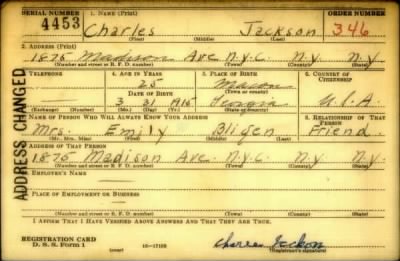 SERIAL NUMBER 1. NAME (Print) ORDER NUMBER
4453 Charles Jackson 346
(First) (Middle) (Last)
2. ADDRESS (Print)
1875 Madison Ave N.Y.C. N.Y. N.Y.
(Number and street or R. F. D. number) (Town) (County) (State)
3. TELEPHONE 4. AGE IN YEARS 5. PLACE OF BIRTH 6. COUNTRY OF CITIZENSHIP
25 Macon
DATE OF BIRTH (Town or county)
3 21 1915 Georgia U.S.A.
(Exchange) (Number) (Mo.) (Day) (Yr.) (State or country)
7. NAME OF PERSON WHO WILL ALWAYS KNOW YOUR ADDRESS 8. RELATIONSHIP OF THAT PERSON
Mrs. Emily Bligen Friend
(Mr., Mrs., Miss) (First) (Middle) (Last)
9. ADDRESS OF THAT PERSON
1875 Madison Ave. N.Y.C. N.Y. N.Y.
(Number and street or R. F. D. number) (Town) (County) (State)
10. EMPLOYER'S NAME
11. PLACE OF EMPLOYMENT OR BUSINESS
(Number and street or R. F. D. number) (Town) (County) (State)
I AFFIRM THAT I HAVE VERIFIED ABOVE ANSWERS AND THAT THEY ARE TRUE.
REGISTRATION CARD
D. S. S. Form 1 (over) 16-17105 Charles Jackson
(Registrant's signature)
ADDRESS CHANGED